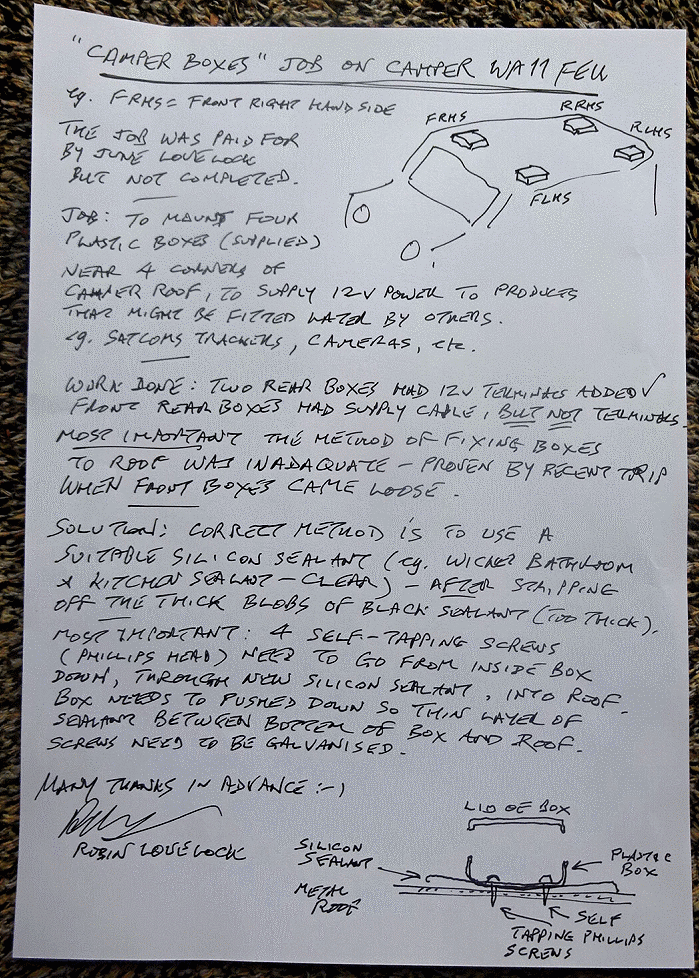 "CAMPER BOXES" JOB ON CAMPER WA11 FEU
eg. FRHS = FRONT RIGHT HAND SIDE
THE JOB WAS PAID FOR
BY JUNE LOVELOCK
BUT NOT COMPLETED.
FRHS
RRHS
RLHS
FLHS
JOB: TO MOUNT FOUR
PLASTIC BOXES (SUPPLIED)
NEAR 4 CORNERS OF
CAMPER ROOF, TO SUPPLY 12V POWER TO PRODUCTS
THAT MIGHT BE FITTED LATER BY OTHERS.
eg. SATCOMS TRACKERS, CAMERAS, etc.
WORK DONE: TWO REAR BOXES HAD 12V TERMINALS ADDED ✓
FRONT REAR BOXES HAD SUPPLY CABLE, BUT NOT TERMINALS.
MOST IMPORTANT THE METHOD OF FIXING BOXES
TO ROOF WAS INADAQUATE - PROVEN BY RECENT TRIP
WHEN FRONT BOXES CAME LOOSE.
SOLUTION: CORRECT METHOD IS TO USE A
SUITABLE SILICON SEALANT (eg. WICKES BATHROOM
& KITCHEN SEALANT - CLEAR) - AFTER STRIPPING
OFF THE THICK BLOBS OF BLACK SEALANT (TOO THICK).
MOST IMPORTANT: 4 SELF-TAPPING SCREWS
(PHILLIPS HEAD) NEED TO GO FROM INSIDE BOX
DOWN, THROUGH NEW SILICON SEALANT, INTO ROOF.
BOX NEEDS TO PUSHED DOWN SO THIN LAYER OF
SEALANT BETWEEN BOTTOM OF BOX AND ROOF.
SCREWS NEED TO BE GALVANISED.
MANY THANKS IN ADVANCE :-)
ROBIN LOVELOCK
LID OF BOX
SILICON
SEALANT
PLASTIC
BOX
METAL
ROOF
SELF
TAPPING PHILLIPS
SCREWS